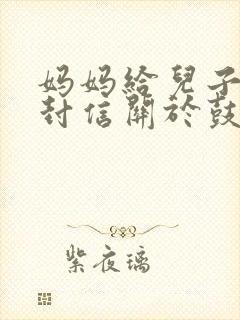 妈妈給兒子
封信關於鼓
紫夜璃